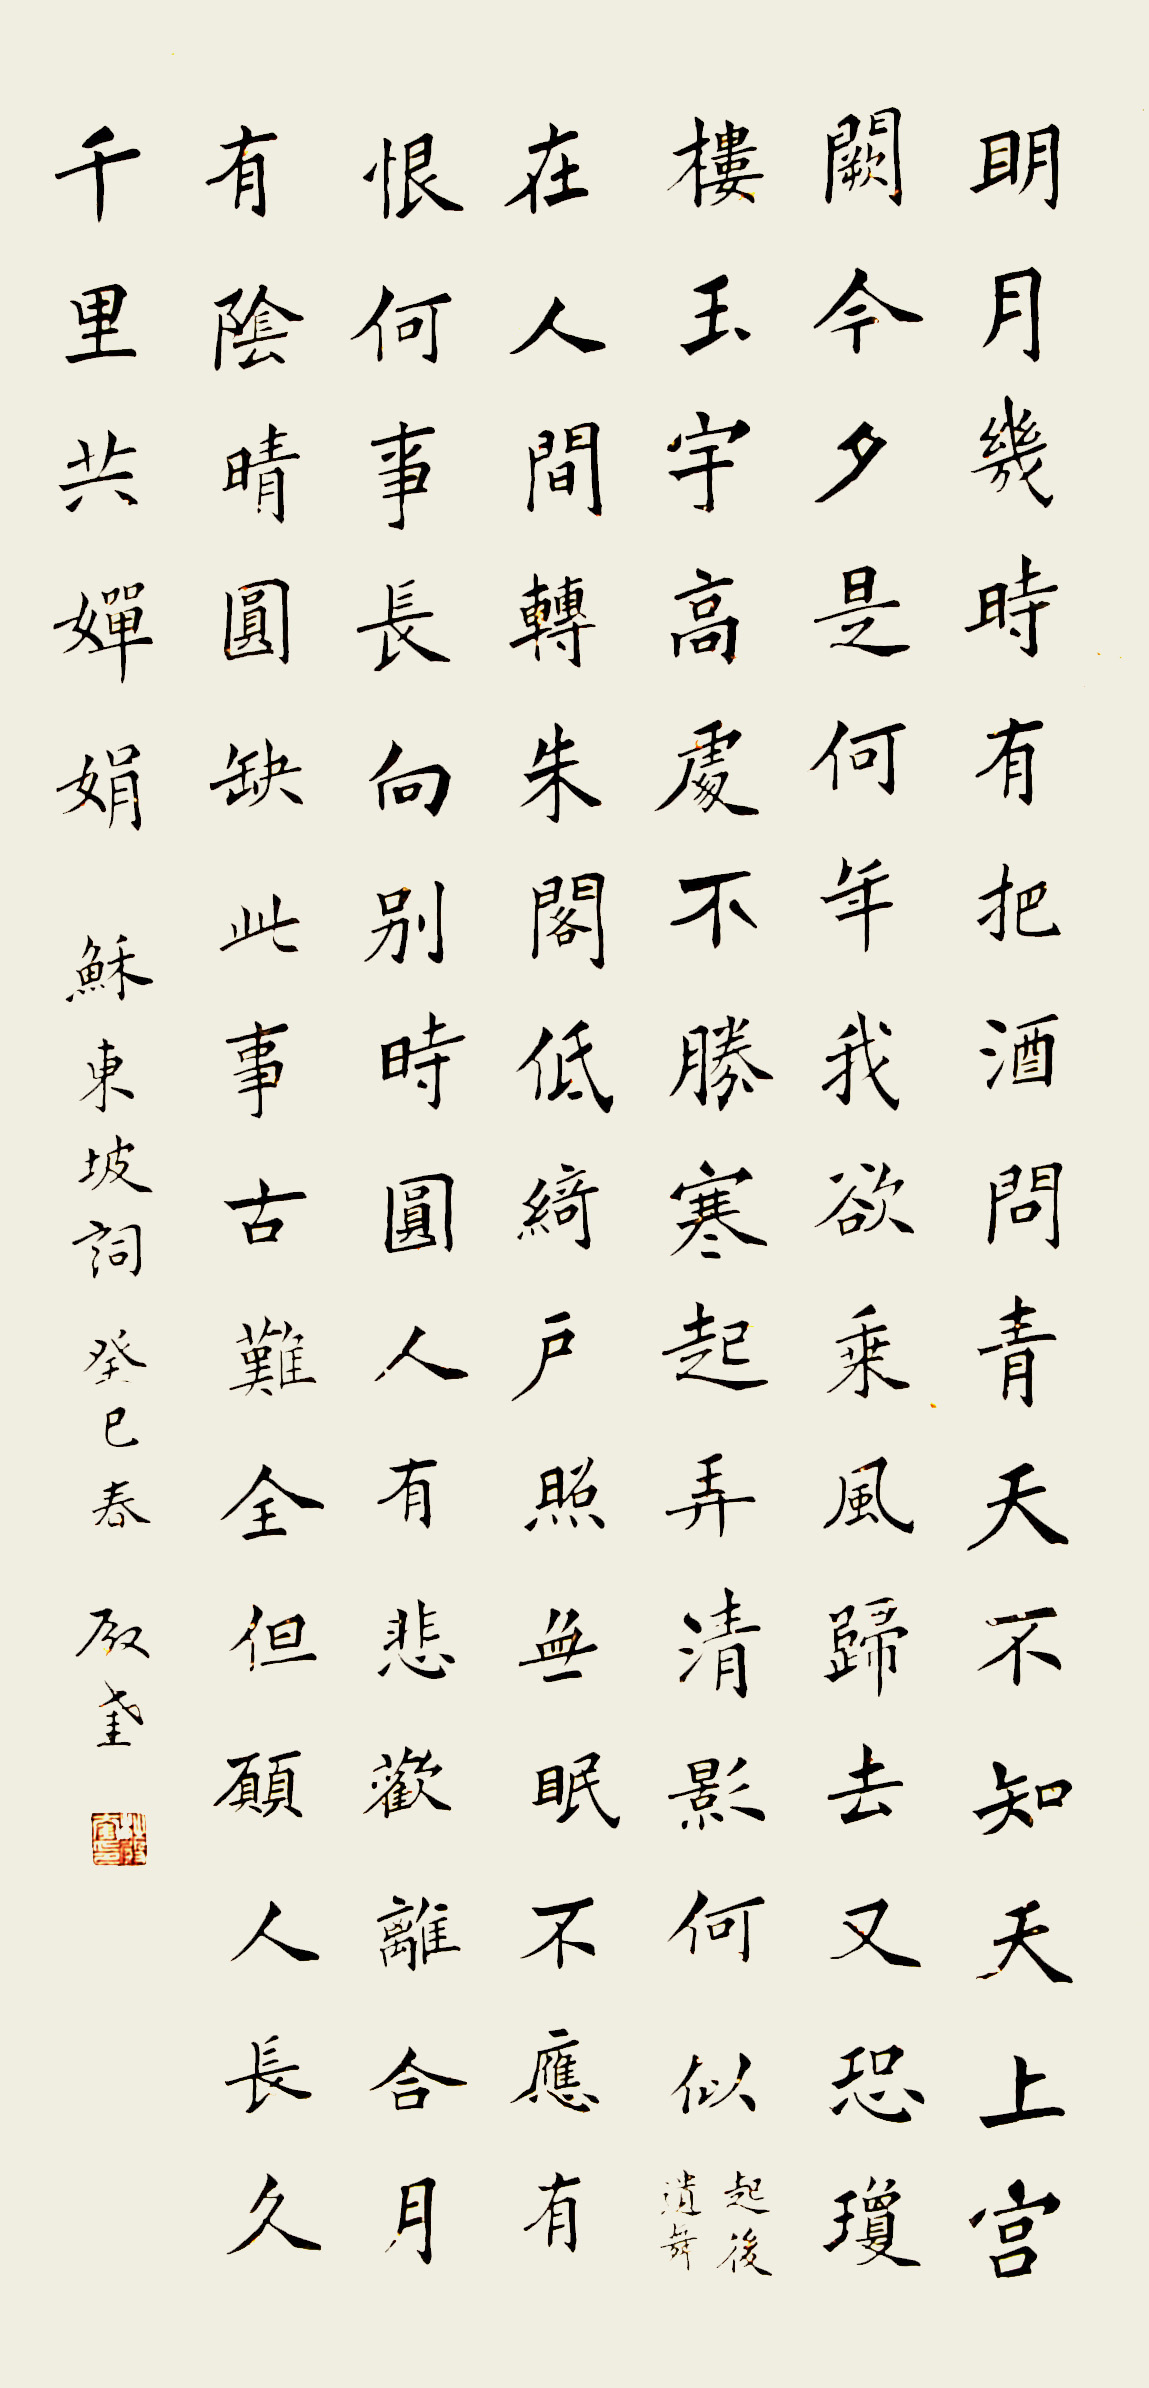 明月幾時有把酒問青天不知天上宫
闕今夕是何年我欲乗風歸去又恐瓊
樓玉宇高處不勝寒起弄清影何似
起後
遺舞
在人間轉朱閣低綺戶照無眠不應有
恨何事長向别時圓人有悲歡離合月
有陰晴圓缺此事古難全但願人長久
千里共嬋娟
穌東坡詞 癸巳春